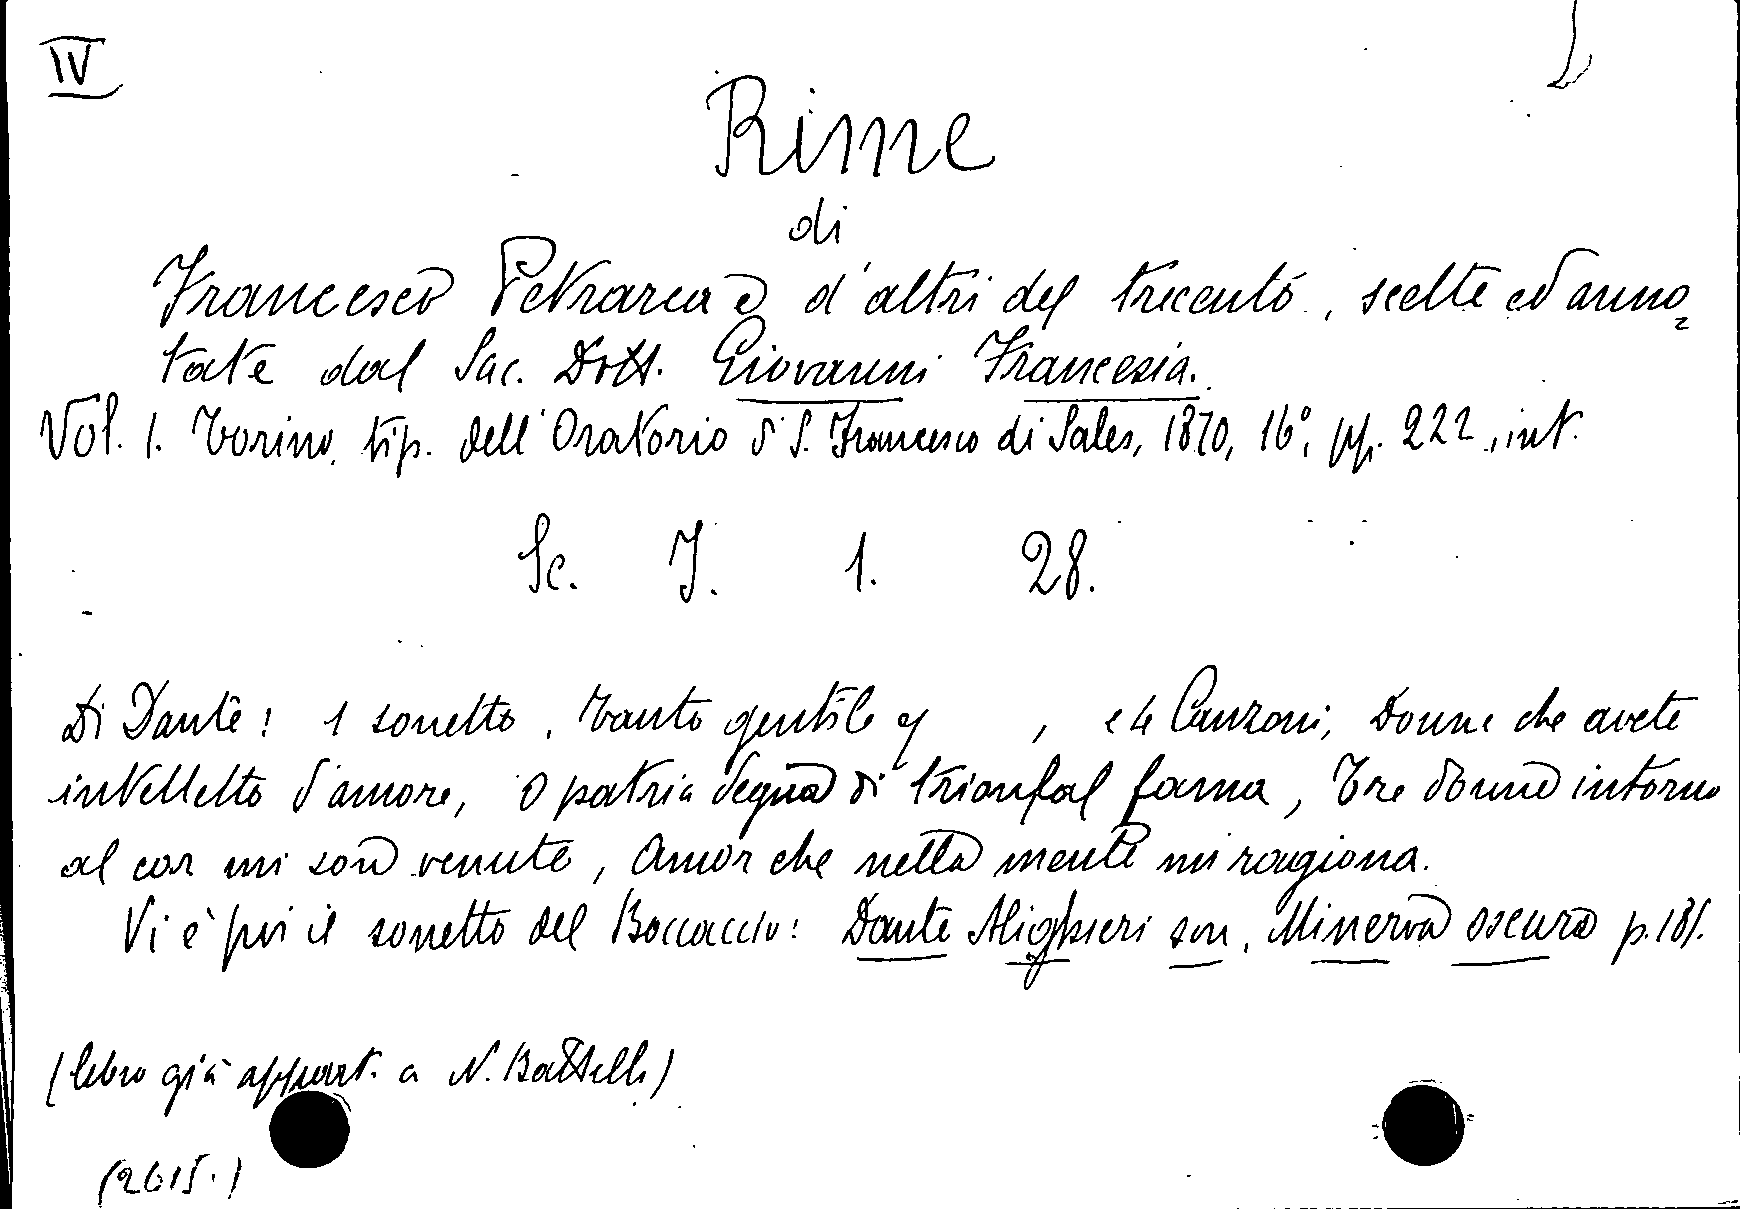 IV
Rime
di
Francesco Petrarca e d'altri del trecento, scelte ed anno=
tate dal Sac. Dott. Giovanni Francesia.
Vol. 1. Torino, tip. dell'Oratorio di S. Francesco di Sales, 1870, 16°, pp. 222, int.
Sc. I. 1. 28.
Di Dante: 1 sonetto. Tanto gentile, e 4 Canzoni; Donne che avete
intelletto d'amore, O patria degna di trionfal fama, Tre donne intorno
al cor mi son venute, Amor che nella mente mi ragiona.
Vi è poi il sonetto del Boccaccio: Dante Alighieri son, Minerva oscura p. 181.
(libro già appart. a N. Battelli)
(2615.)